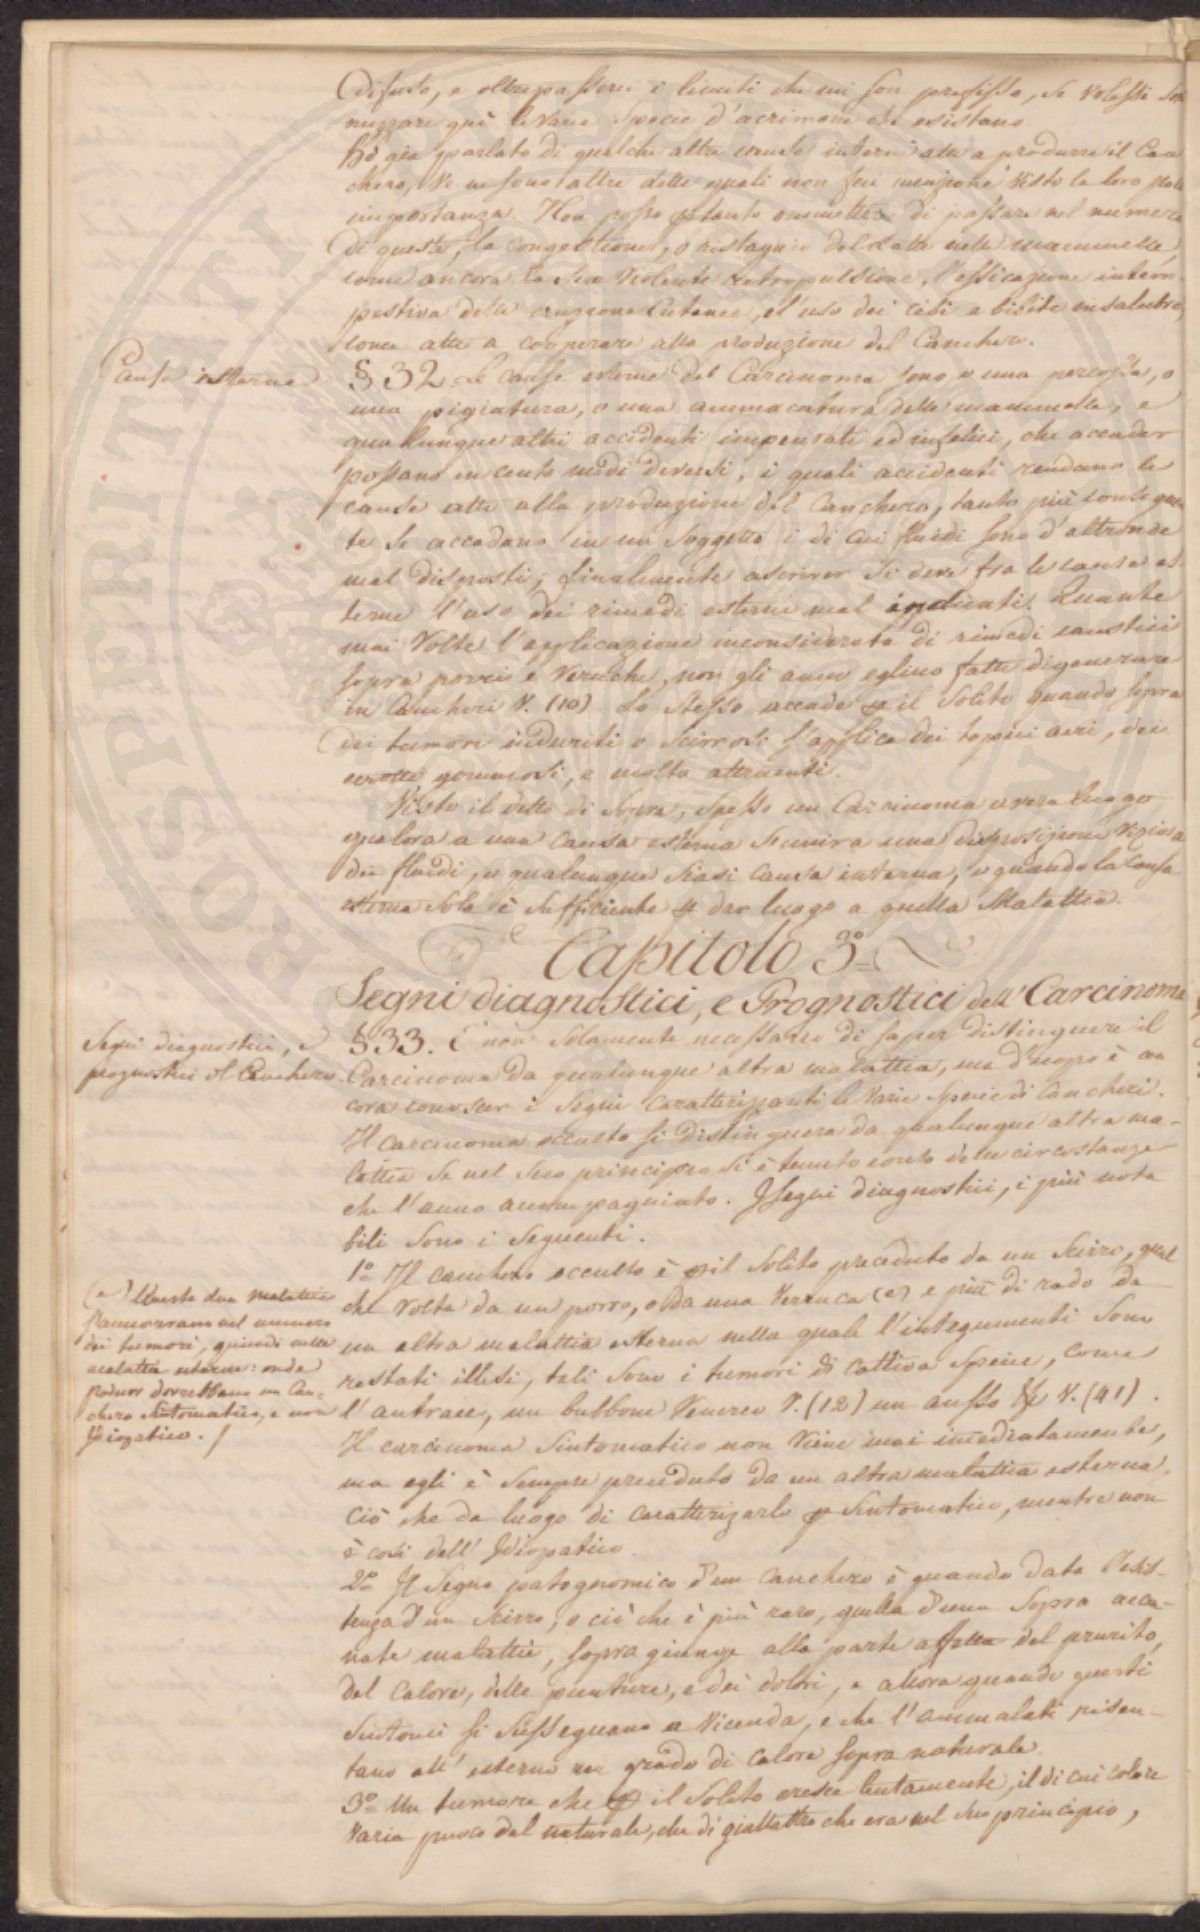 difuso, e oltrepasserei i limiti che mi son prefisso, se volessi
nuzzare quì le varie specie d'acrimonie che esistano.
Hò già parlato di qualche altra causa interna atta a produrre il Can
chero, ve ne sono altre delle quali non feci menzione visto la loro poca
importanza. Non posso ptanto ommettere di passare nel numero
di queste, la congestione, o ristagnio del Latte nelle mammelle,
come ancora la sua violente retropulsione, l'essicazione intem-
pestiva delle eruzione Cutanee, el'uso dei cibi e bibite insalubre,
come atte a cooperare alla produzione del Canchero.
Cause esterne
§ 32. Le cause esterne del Carcinoma sono, o una percossa, o
una pigiatura, o una ammacatura delle mammelle, e
qualunque altri accidenti impensati ed infelici, che accader
possano in cento modi diversi, i quali accidenti rendano le
cause atte alla produzione del Canchero, tanto più conseguen
te se accadano in un soggetto i di cui fluidi sono d'altronde
mal disposti; finalmente ascriver si deve fra le cause es
terne l'uso dei rimedi esterni mal applicati. Quante
mai volte l'applicazione inconsiderata di rimedi caustici
sopra porri e veruche, non gli anno eglino fatti digenerare
in Cancheri V. (10) Lo stesso accade p il solito quando sopra
dei tumori induriti o scirrosi s'applica dei topici acri, dei
cerotti gommosi, e molto attraenti.
Visto il detto di sopra, spesso un Carcinoma avera luogo
qualora a una causa esterna s'unira una disposizione viziosa
dei fluidi, o qualunque siasi causa interna, o quando la causa
esterna sola è sufficiente p dar luogo a quella Malattia.
Capitolo 3º
Segni diagnostici, e Prognostici dell' Carcinoma
Segni diagnostici, e
prognostici del Canchero.
§ 33. È non solamente necessario di saper distinguere il
Carcinoma da qualunque altra malattia, ma d'uopo è an
cora conoscer i segni caratterizzanti le varie specie di Cancheri.
Il carcinoma occulto si distinguera da qualunque altra ma-
lattia se nel suo principio si è tenuto conto delle circostanze
che l'anno accompagniato. I segni diagnostici, i più nota
bili sono i seguenti.
1º Il canchero occulto è p il solito preceduto da un scirro, qual
che volta da un porro, o da una verruca (a) e più di rado da
un altra malattia esterna nella quale l'integumenti sono
restati illesi, tali sono i tumori di cattiva specie, come
l'antrace, un bubbone venereo V. (12) un ausso V. (41).
(a) Queste due malattie
s'annoverano nel numero
dei tumori, quindi nelle
malattie esterne: onde
poduor dovrebbano un Can-
chero sintomatico, e non
Idiopatico.
Il carcinoma sintomatico non viene mai imediatamente,
ma egli è sempre preceduto da un altra malattia esterna,
ciò che da luogo di caratterizarlo p sintomatico, mentre non
è così dell' Idiopatico.
2º Il segno patognomico d'un canchero è quando data l'esis-
tenza d'un scirro, o ciò che è più raro, quella d'una sopra acce-
nate malattie, sopragiunge alla parte affetta del prurito,
del calore, delle punture, e dei dolori, e allora quando questi
sintomi si sussequano a vicenda, e che l'ammalati risen-
tano all' esterno un grado di calore sopra naturale.
3º Un tumore che p il solito cresce lentamente, il di cui colore
varia puoco dal naturale, che di giallastro che era nel suo principio,